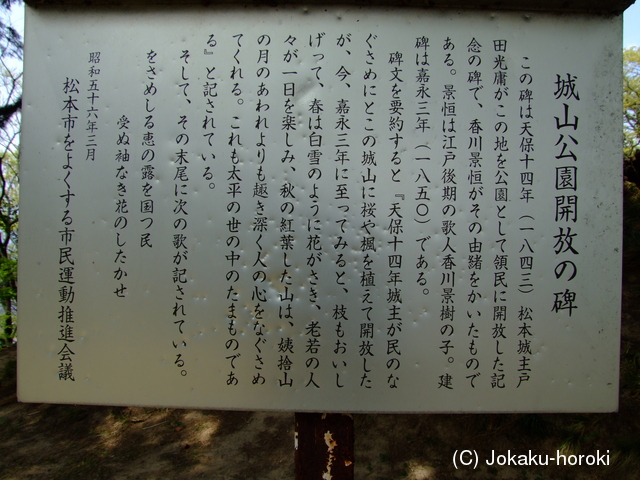 城山公園開放の碑
この碑は天保十四年（一八四三）松本城主戸
田光庸がこの地を公園として領民に開放した記
念の碑で、香川景恒がその由緒をかいたもので
ある。景恒は江戸後期の歌人香川景樹の子。建
碑は嘉永三年（一八五〇）である。
碑文を要約すると『天保十四年城主が民のな
ぐさめにとこの城山に桜や楓を植えて開放した
が、今、嘉永三年に至ってみると、枝もおいし
げって、春は白雪のように花がさき、老若の人
々が一日を楽しみ、秋の紅葉した山は、姨捨山
の月のあわれよりも趣き深く人の心をなぐさめ
てくれる。これも太平の世の中のたまものであ
る』と記されている。
そして、その末尾に次の歌が記されている。
をさめしる恵の露を国つ民
受ぬ袖なき花のしたかせ
昭和五十六年三月
松本市をよくする市民運動推進会議
(C) Jokaku-horoki